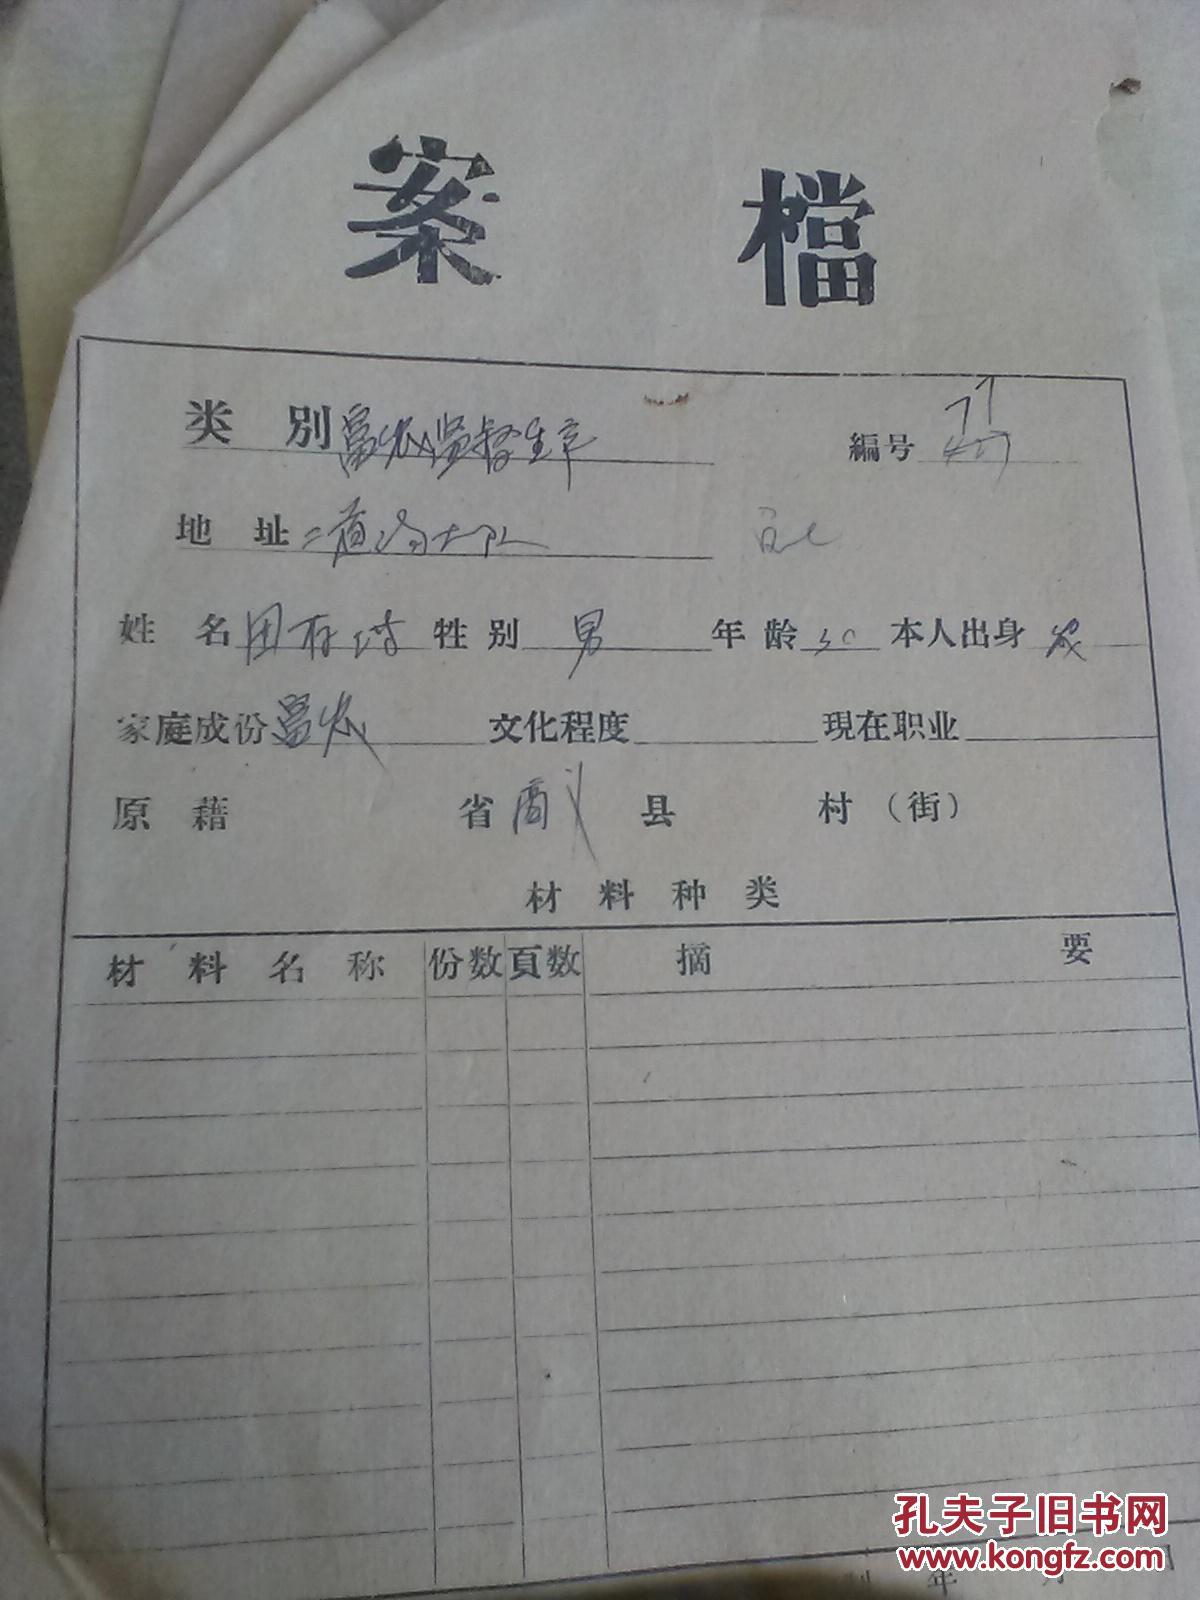 案 檔
类 别 富农监督生产 編号 77
地 址 二道沟大队
姓 名 性 别 男 年 龄 30 本人出身 农
家庭成份 富农 文化程度 現在职业
原 藉 省 商义 县 村（街）
材 料 种 类
材 料 名 称 份数 頁数 摘 要
年 月 日
孔夫子旧书网
www.kongfz.com